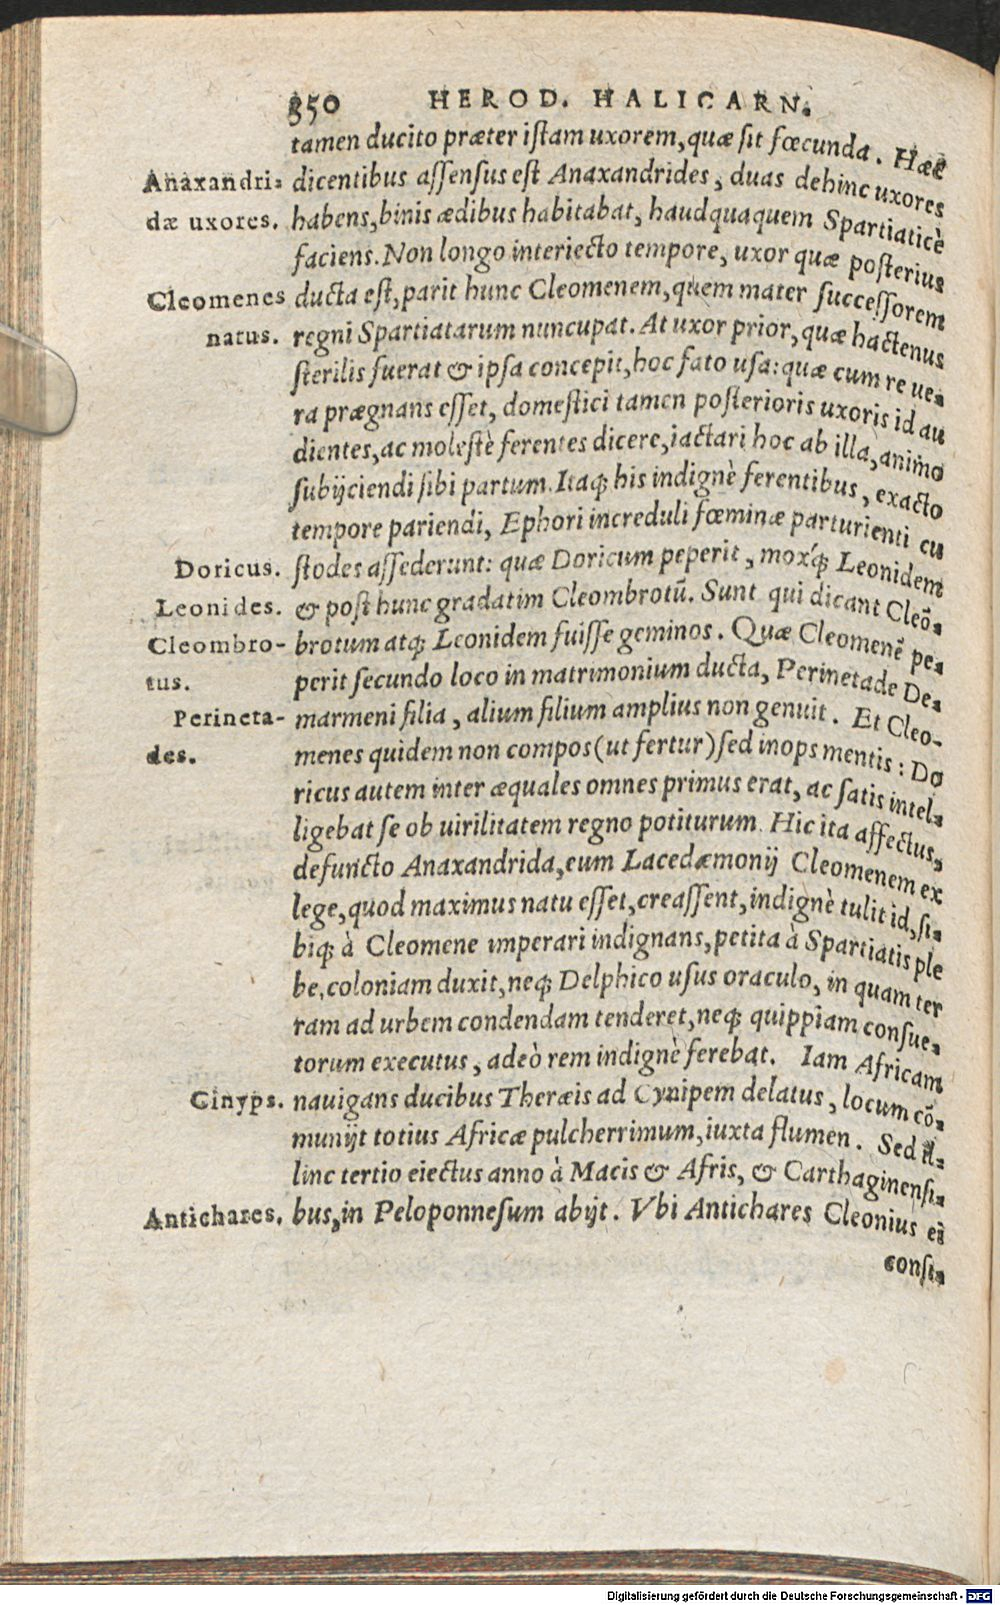 350 HEROD. HALICARN.
tamen ducito præter istam uxorem, quæ sit fœcunda. Hæc
Anaxandri= dicentibus assensus est Anaxandrides, duas dehinc uxores
dæ uxores. habens, binis ædibus habitabat, haudquaquem Spartiaticè
faciens. Non longo interiecto tempore, uxor quæ posterius
Cleomenes ducta est, parit hunc Cleomenem, quem mater successorem
natus. regni Spartiatarum nuncupat. At uxor prior, quæ hactenus
sterilis fuerat & ipsa concepit, hoc fato usa: quæ cum re ue=
ra prægnans esset, domestici tamen posterioris uxoris id au
dientes, ac molestè ferentes dicere, iactari hoc ab illa, animo
subijciendi sibi partum. Itaq; his indignè ferentibus, exacto
tempore pariendi, Ephori increduli fœminæ parturienti cu
Doricus. stodes assederunt: quæ Doricum peperit, moxq́; Leonidem
Leonides. & post hunc gradatim Cleombrotũ. Sunt qui dicant Cleõ=
Cleombro- brotum atq; Leonidem fuisse geminos. Quæ Cleomenẽ pe=
tus. perit secundo loco in matrimonium ducta, Perinetade De=
Perineta- marmeni filia, alium filium amplius non genuit. Et Cleo-
des. menes quidem non compos (ut fertur) sed inops mentis: Do
ricus autem inter æquales omnes primus erat, ac satis intel=
ligebat se ob uirilitatem regno potiturum. Hic ita affectus,
defuncto Anaxandrida, eum Lacedæmonij Cleomenem ex
lege, quod maximus natu esset, creassent, indignè tulit id, si=
biq; à Cleomene imperari indignans, petita à Spartiatis ple
be, coloniam duxit, neq; Delphico usus oraculo, in quam ter
ram ad urbem condendam tenderet, neq; quippiam consue=
torum executus, adeò rem indignè ferebat. Iam Africam
Cinyps. nauigans ducibus Theræis ad Cynipem delatus, locum cõ=
munijt totius Africæ pulcherrimum, iuxta flumen. Sed il=
linc tertio eiectus anno à Macis & Afris, & Carthaginensi=
Antichares. bus, in Peloponnesum abijt. Vbi Antichares Cleonius ei
consi=
Digitalisierung gefördert durch die Deutsche Forschungsgemeinschaft - DFG